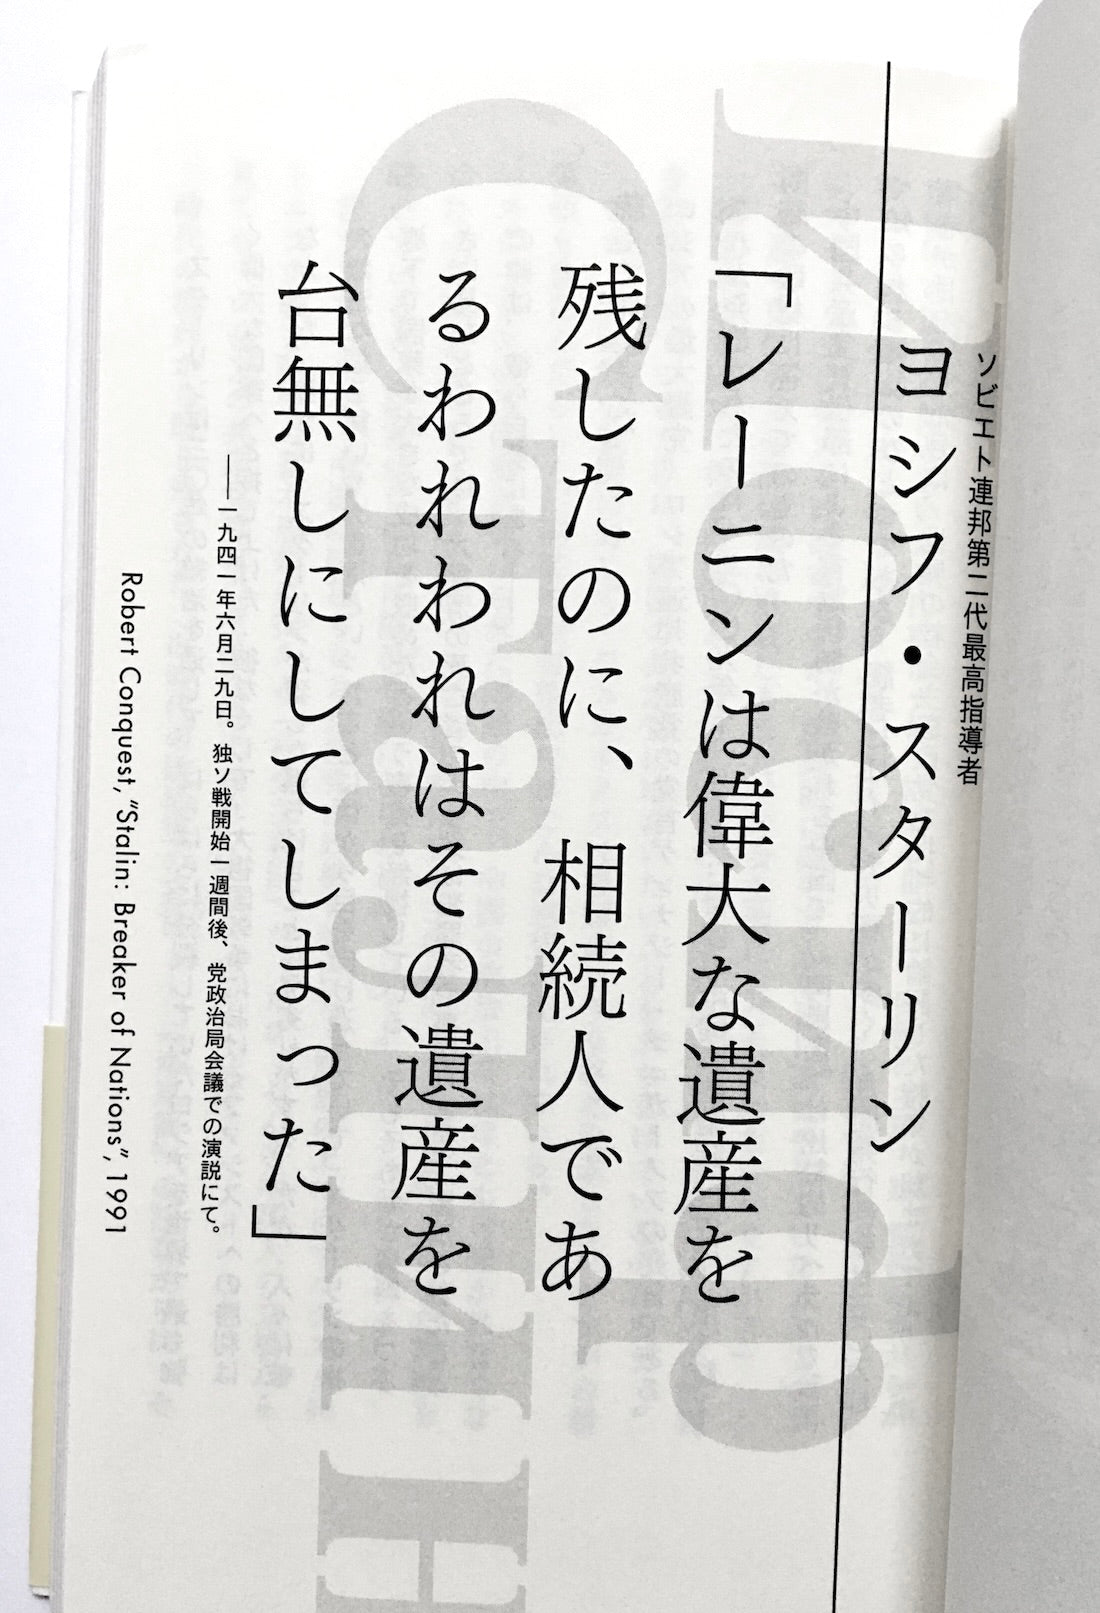 ソビエト連邦第二代最高指導者
ヨシフ・スターリン
「レーニンは偉大な遺産を
残したのに、相続人であ
るわれわれはその遺産を
台無しにしてしまった」
――一九四一年六月二九日。独ソ戦開始一週間後、党政治局会議での演説にて。
Robert Conquest, “Stalin: Breaker of Nations”, 1991
Иосиф
Сталин